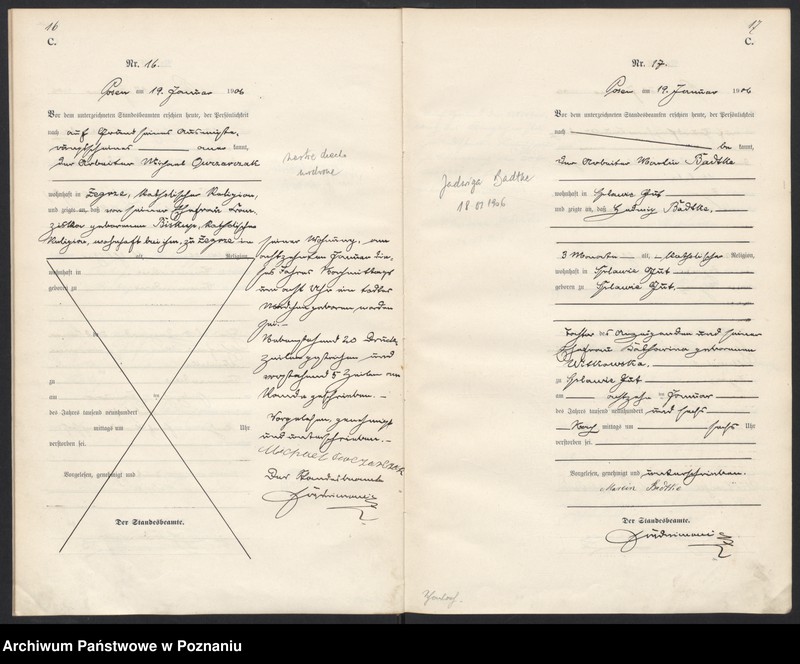 16
C.
Nr. 16.
Posen am 19. Januar 1906
Vor dem unterzeichneten Standesbeamten erschien heute, der Persönlichkeit
nach auf Grund seines Ausmuste-
rungsscheines aner kannt,
der Arbeiter Michael Owczarczak
wohnhaft in Zegrze, katholischer Religion,
und zeigte an, daß von seiner Ehefrau Fran-
ziska geborenen Biskup, katholischer
Religion, wohnhaft bei ihm, zu Zegrze in
alt, Religion,
wohnhaft in
geboren zu
zu
am
des Jahres tausend neunhundert
mittags um Uhr
verstorben sei.
Vorgelesen, genehmigt und
Der Standesbeamte.
martwe dziecko
seiner Wohnung, am
achtzehnten Januar die-
ses Jahres Vormittags
um acht Uhr ein todtes
Mädchen geboren worden
sei.
Nebenstehend 20 Druck-
zeilen gestrichen und
vorstehend 5 Zeilen am
Rande geschrieben.
Vorgelesen, genehmigt
und unterschrieben.
Michael Owczarczak
Der Standesbeamte
17
C.
Nr. 17.
Posen am 19. Januar 1906
Vor dem unterzeichneten Standesbeamten erschien heute, der Persönlichkeit
nach
be kannt,
der Arbeiter Martin Badtke
wohnhaft in Gut
und zeigte an, daß Hedwig Badtke,
3 Monate alt, katholischer Religion,
wohnhaft in Gut
geboren zu Gut,
Tochter des Anzeigenden und seiner
Ehefrau Katharina geborenen
Witkowska,
zu Gut
am achtzehn ten Januar
des Jahres tausend neunhundert und sechs
Nach mittags um sechs Uhr
verstorben sei.
Vorgelesen, genehmigt und unterschrieben.
Martin Badtke
Der Standesbeamte.
Jadwiga Badtke
18.01.1906
Archiwum Państwowe w Poznaniu